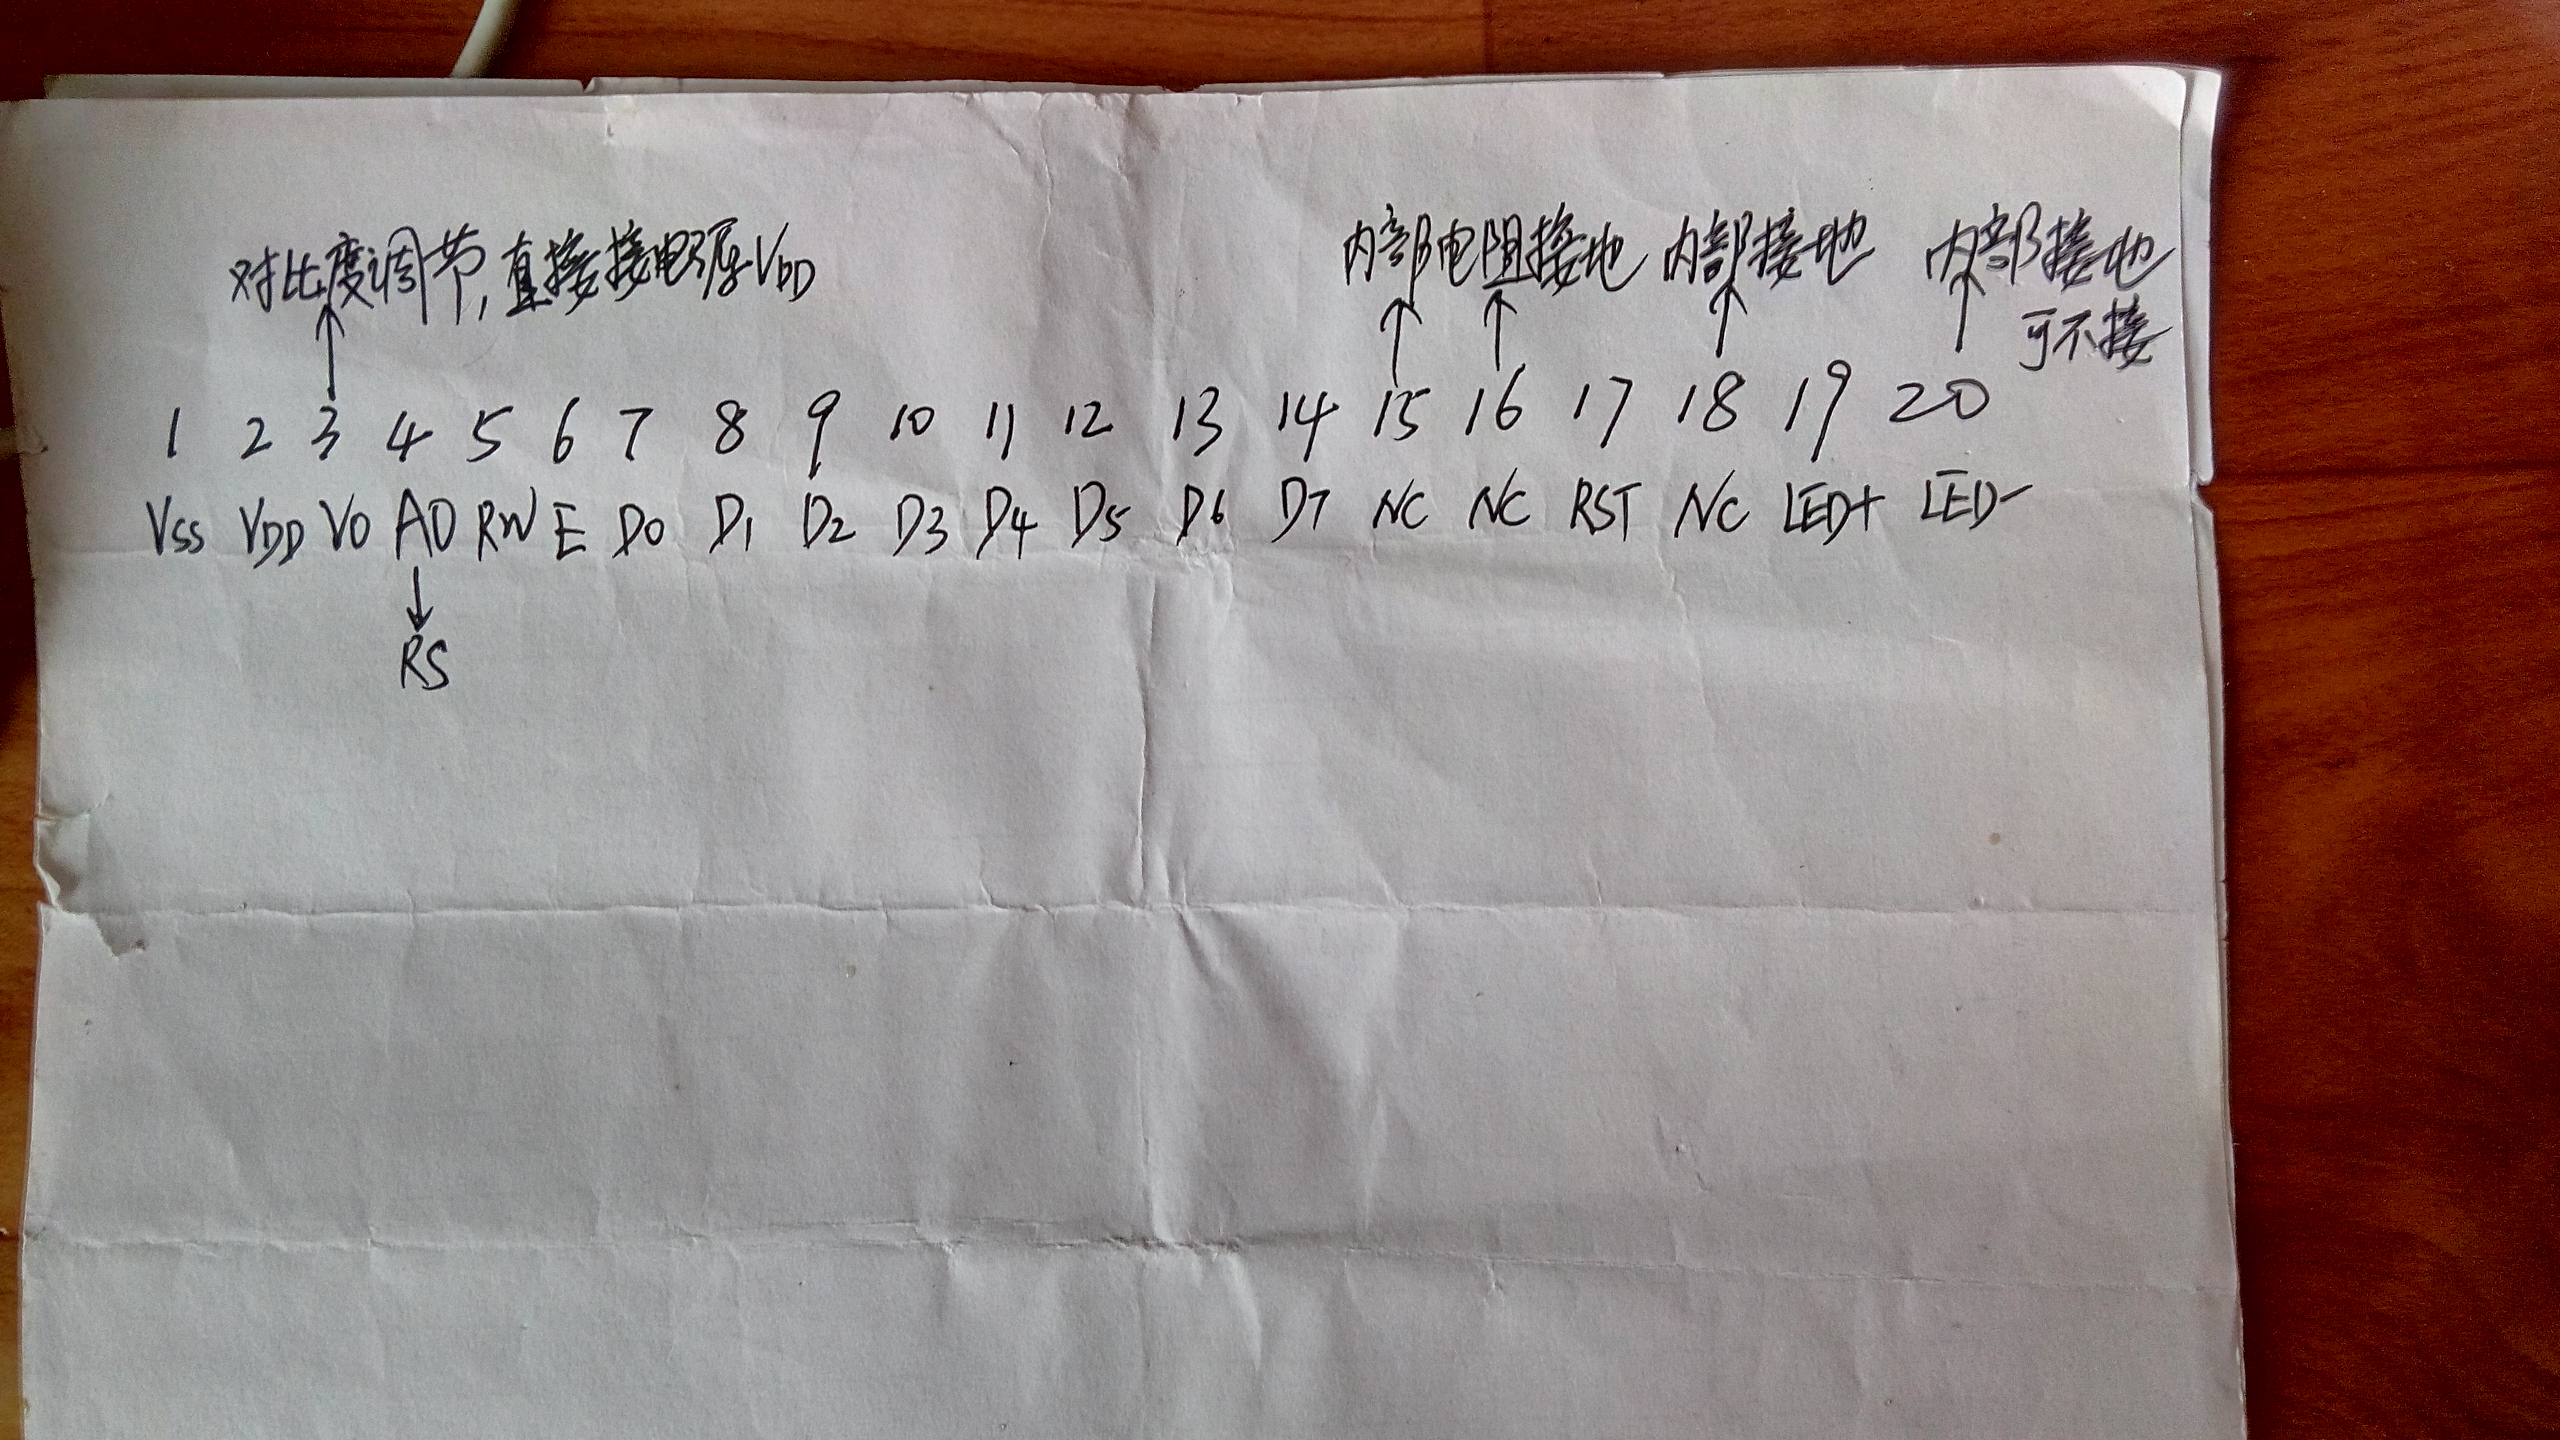 对比度调节,直接接电源VDD 内部电阻接地 内部接地 内部接地
可不接
1 2 3 4 5 6 7 8 9 10 11 12 13 14 15 16 17 18 19 20
VSS VDD VO AO RW E DO D1 D2 D3 D4 D5 D6 D7 NC NC RST NC LED+ LED-
RS